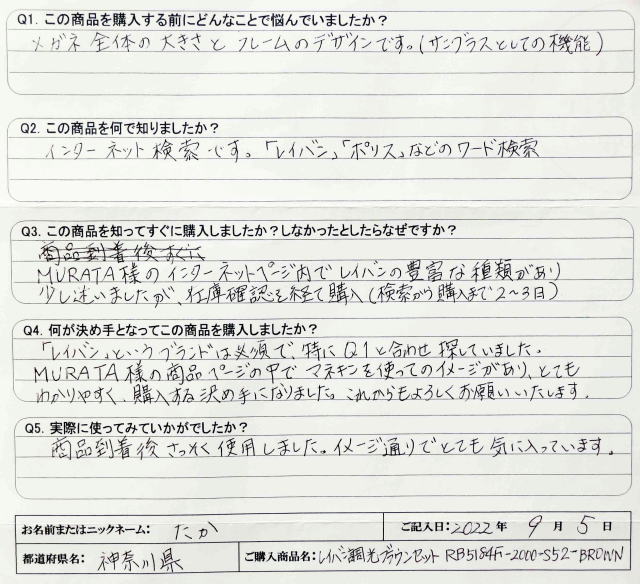 Q1. この商品を購入する前にどんなことで悩んでいましたか？
メガネ全体の大きさとフレームのデザインです。(サングラスとしての機能)
Q2. この商品を何で知りましたか？
インターネット検索です。「レイバン」「ポリス」などのワード検索
Q3. この商品を知ってすぐに購入しましたか？しなかったとしたらなぜですか？
商品到着後すぐに
MURATA様のインターネットページ内でレイバンの豊富な種類があり
少し迷いましたが、在庫確認を経て購入(検索から購入まで2~3日)
Q4. 何が決め手となってこの商品を購入しましたか？
「レイバン」というブランドは必須で、特にQ1と合わせ探していました。
MURATA様の商品ページの中でマネキンを使ってのイメージがあり、とても
わかりやすく、購入する決め手になりました。これからもよろしくお願いいたします。
Q5. 実際に使ってみていかがでしたか？
商品到着後さっそく使用しました。イメージ通りでとても気に入っています。
お名前またはニックネーム： たか ご記入日：2022年 9月 5日
都道府県名： 神奈川県 ご購入商品名：レイバン調光ブラウンセット RB5184F-2000-S52-BROWN